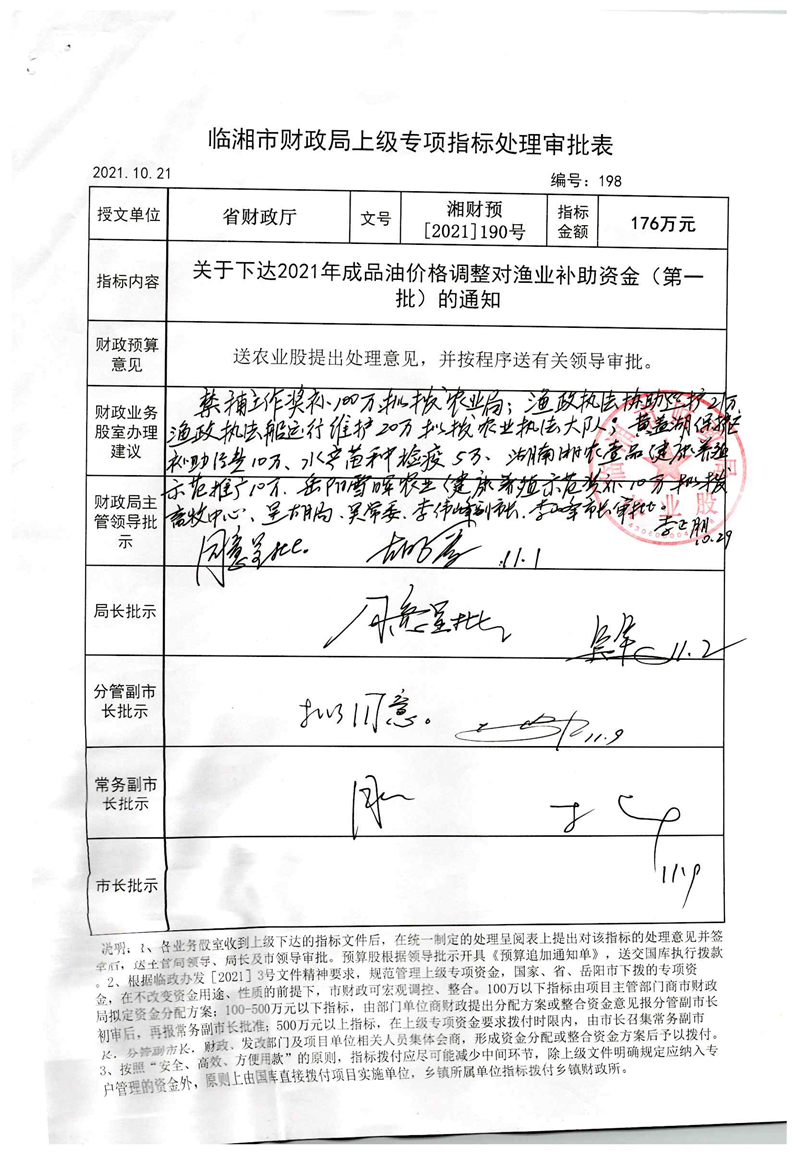 临湘市财政局上级专项指标处理审批表
2021.10.21
编号：198
授文单位
省财政厅
文号
湘财预[2021]190号
指标金额
176万元
指标内容
关于下达2021年成品油价格调整对渔业补助资金（第一
批）的通知
财政预算意见
送农业股提出处理意见，并按程序送有关领导审批。
财政业务股室办理建议
禁捕工作奖补100万拟拨农业局；渔政执法协助巡护21万
渔政执法船运行维护20万拟拨农业执法大队；黄盖湖保护区
补助经费10万、水产苗种检疫5万、湖南湘
健康养殖
示范推广10万、岳阳
农业健康养殖示范奖补10万拟拨
畜牧中心、呈胡局、吴常委、李伟峰副市长、李
市长审批。
10.29
农业股
财政局主管领导批示
同意呈批。
11.1
局长批示
同意呈批
11.2
分管副市长批示
拟同意。
11.9
常务副市长批示
同意
市长批示
11.9
说明：1、各业务股室收到上级下达的指标文件后，在统一制定的处理呈阅表上提出对该指标的处理意见并签
章后，送主管局领导、局长及市领导审批。预算股根据领导批示开具《预算追加通知单》，送交国库执行拨款
。2、根据临政办发[2021]3号文件精神要求，规范管理上级专项资金，国家、省、岳阳市下拨的专项资
金，在不改变资金用途、性质的前提下，市财政可宏观调控、整合。100万以下指标由项目主管部门商市财政
局拟定资金分配方案；100-500万元以下指标，由部门单位商财政提出分配方案或整合资金意见报分管副市长
初审后，再报常务副市长批准；500万元以上指标，在上级专项资金要求拨付时限内，由市长召集常务副市
长、分管副市长、财政、发改部门及项目单位相关人员集体会商，形成资金分配或整合资金方案后予以拨付。
3、按照“安全、高效、方便用款”的原则，指标拨付应尽可能减少中间环节，除上级文件明确规定应纳入专
户管理的资金外，原则上由国库直接拨付项目实施单位，乡镇所属单位指标拨付乡镇财政所。